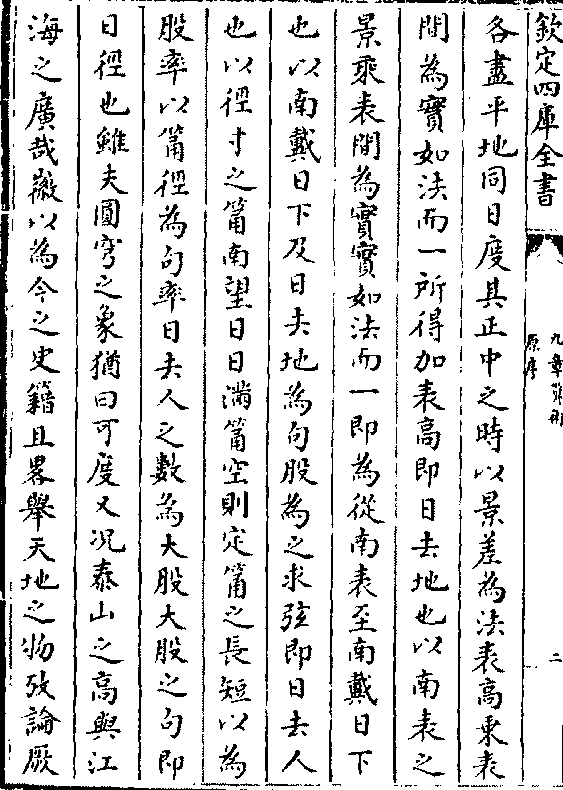 欽定四庫全書
九章算術
原序
二
各盡平地同日度其正中之時以景差為法表高乘表
間為實如法而一所得加表高即日去地也以南表之
景乘表間為實實如法而一即為從南表至南戴日下
也以南戴日下及日去地為句股為之求弦即日去人
也以徑寸之筩南望日日滿筩空則定筩之長短以為
股率以筩徑為句率日去人之數為大股大股之句即
日徑也雖夫圓穹之象猶曰可度又况泰山之髙與江
海之廣哉㣲以為今之史籍且畧舉天地之物攷論厥